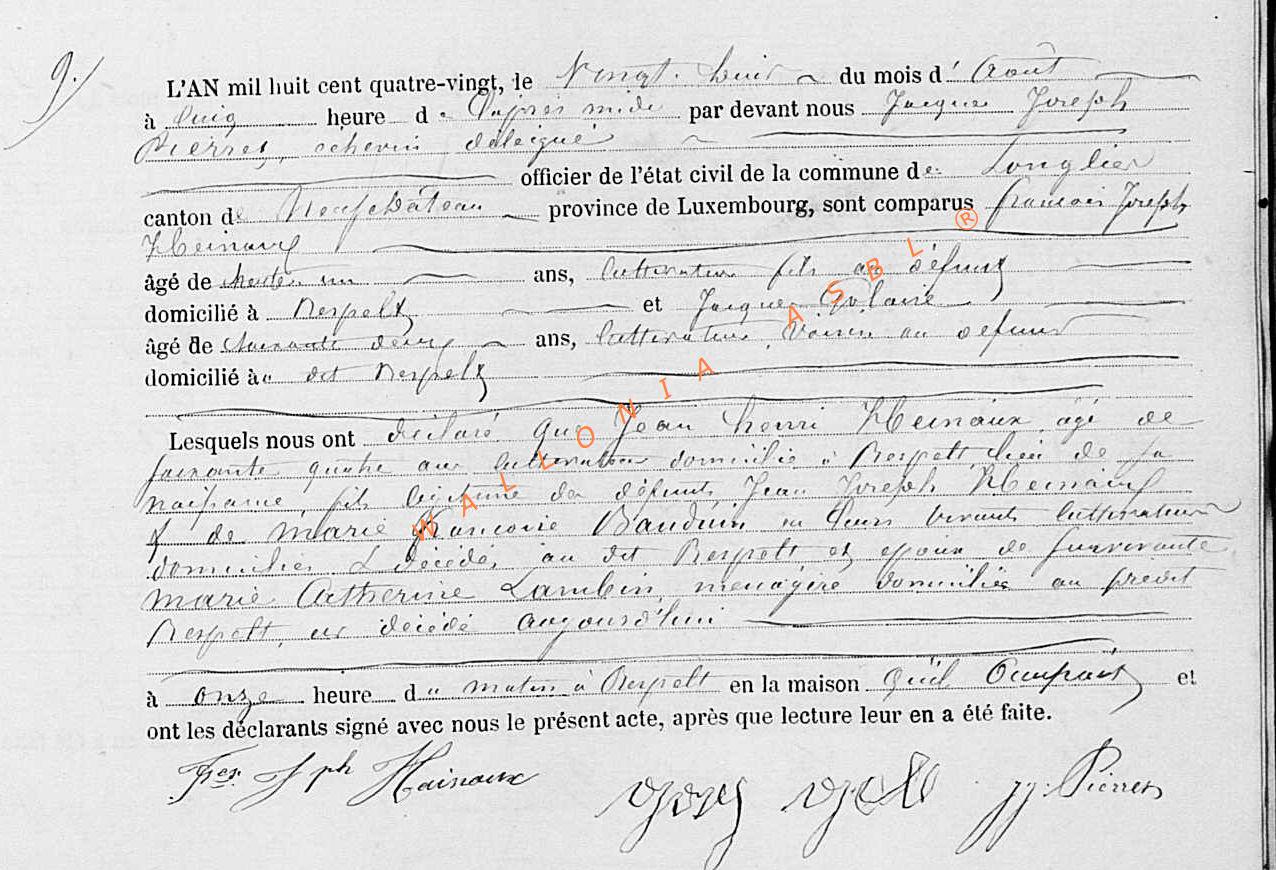 9.
L'AN mil huit cent quatre-vingt, le Vingt huit du mois d' Août
à Cinq heure de l'après midi par devant nous Jacque Joseph
Pierret, echevin délégué
officier de l'état civil de la commune de Longlier
canton de Neufchâteau province de Luxembourg, sont comparus francois Joseph
Heinaux
âgé de trente un ans, cultivateur fils au défunt
domicilié à Respelt et Jacque
âgé de soixante deux ans, cultivateur, Voisin au défunt
domicilié au dit Respelt
Lesquels nous ont déclaré que Jean henri Heinaux âgé de
soixante quatre ans cultivateur domicilié à Respelt lieu de sa
naissance, fils légitime de défunts Jean Joseph Heinaux
& de marie françoise Bauduin en leurs vivants cultivateurs
domiciliés & décédés au dit Respelt et epoux de survivante
marie Catherine Lambin, menagère domiciliée au predit
Respelt, est décédé aujourd'hui
à onze heure du matin à Respelt en la maison qu'il Occupait et
ont les déclarants signé avec nous le présent acte, après que lecture leur en a été faite.
Fçs. Jph Hainaux JJ. Pierret
WALLONIA ASBL ®